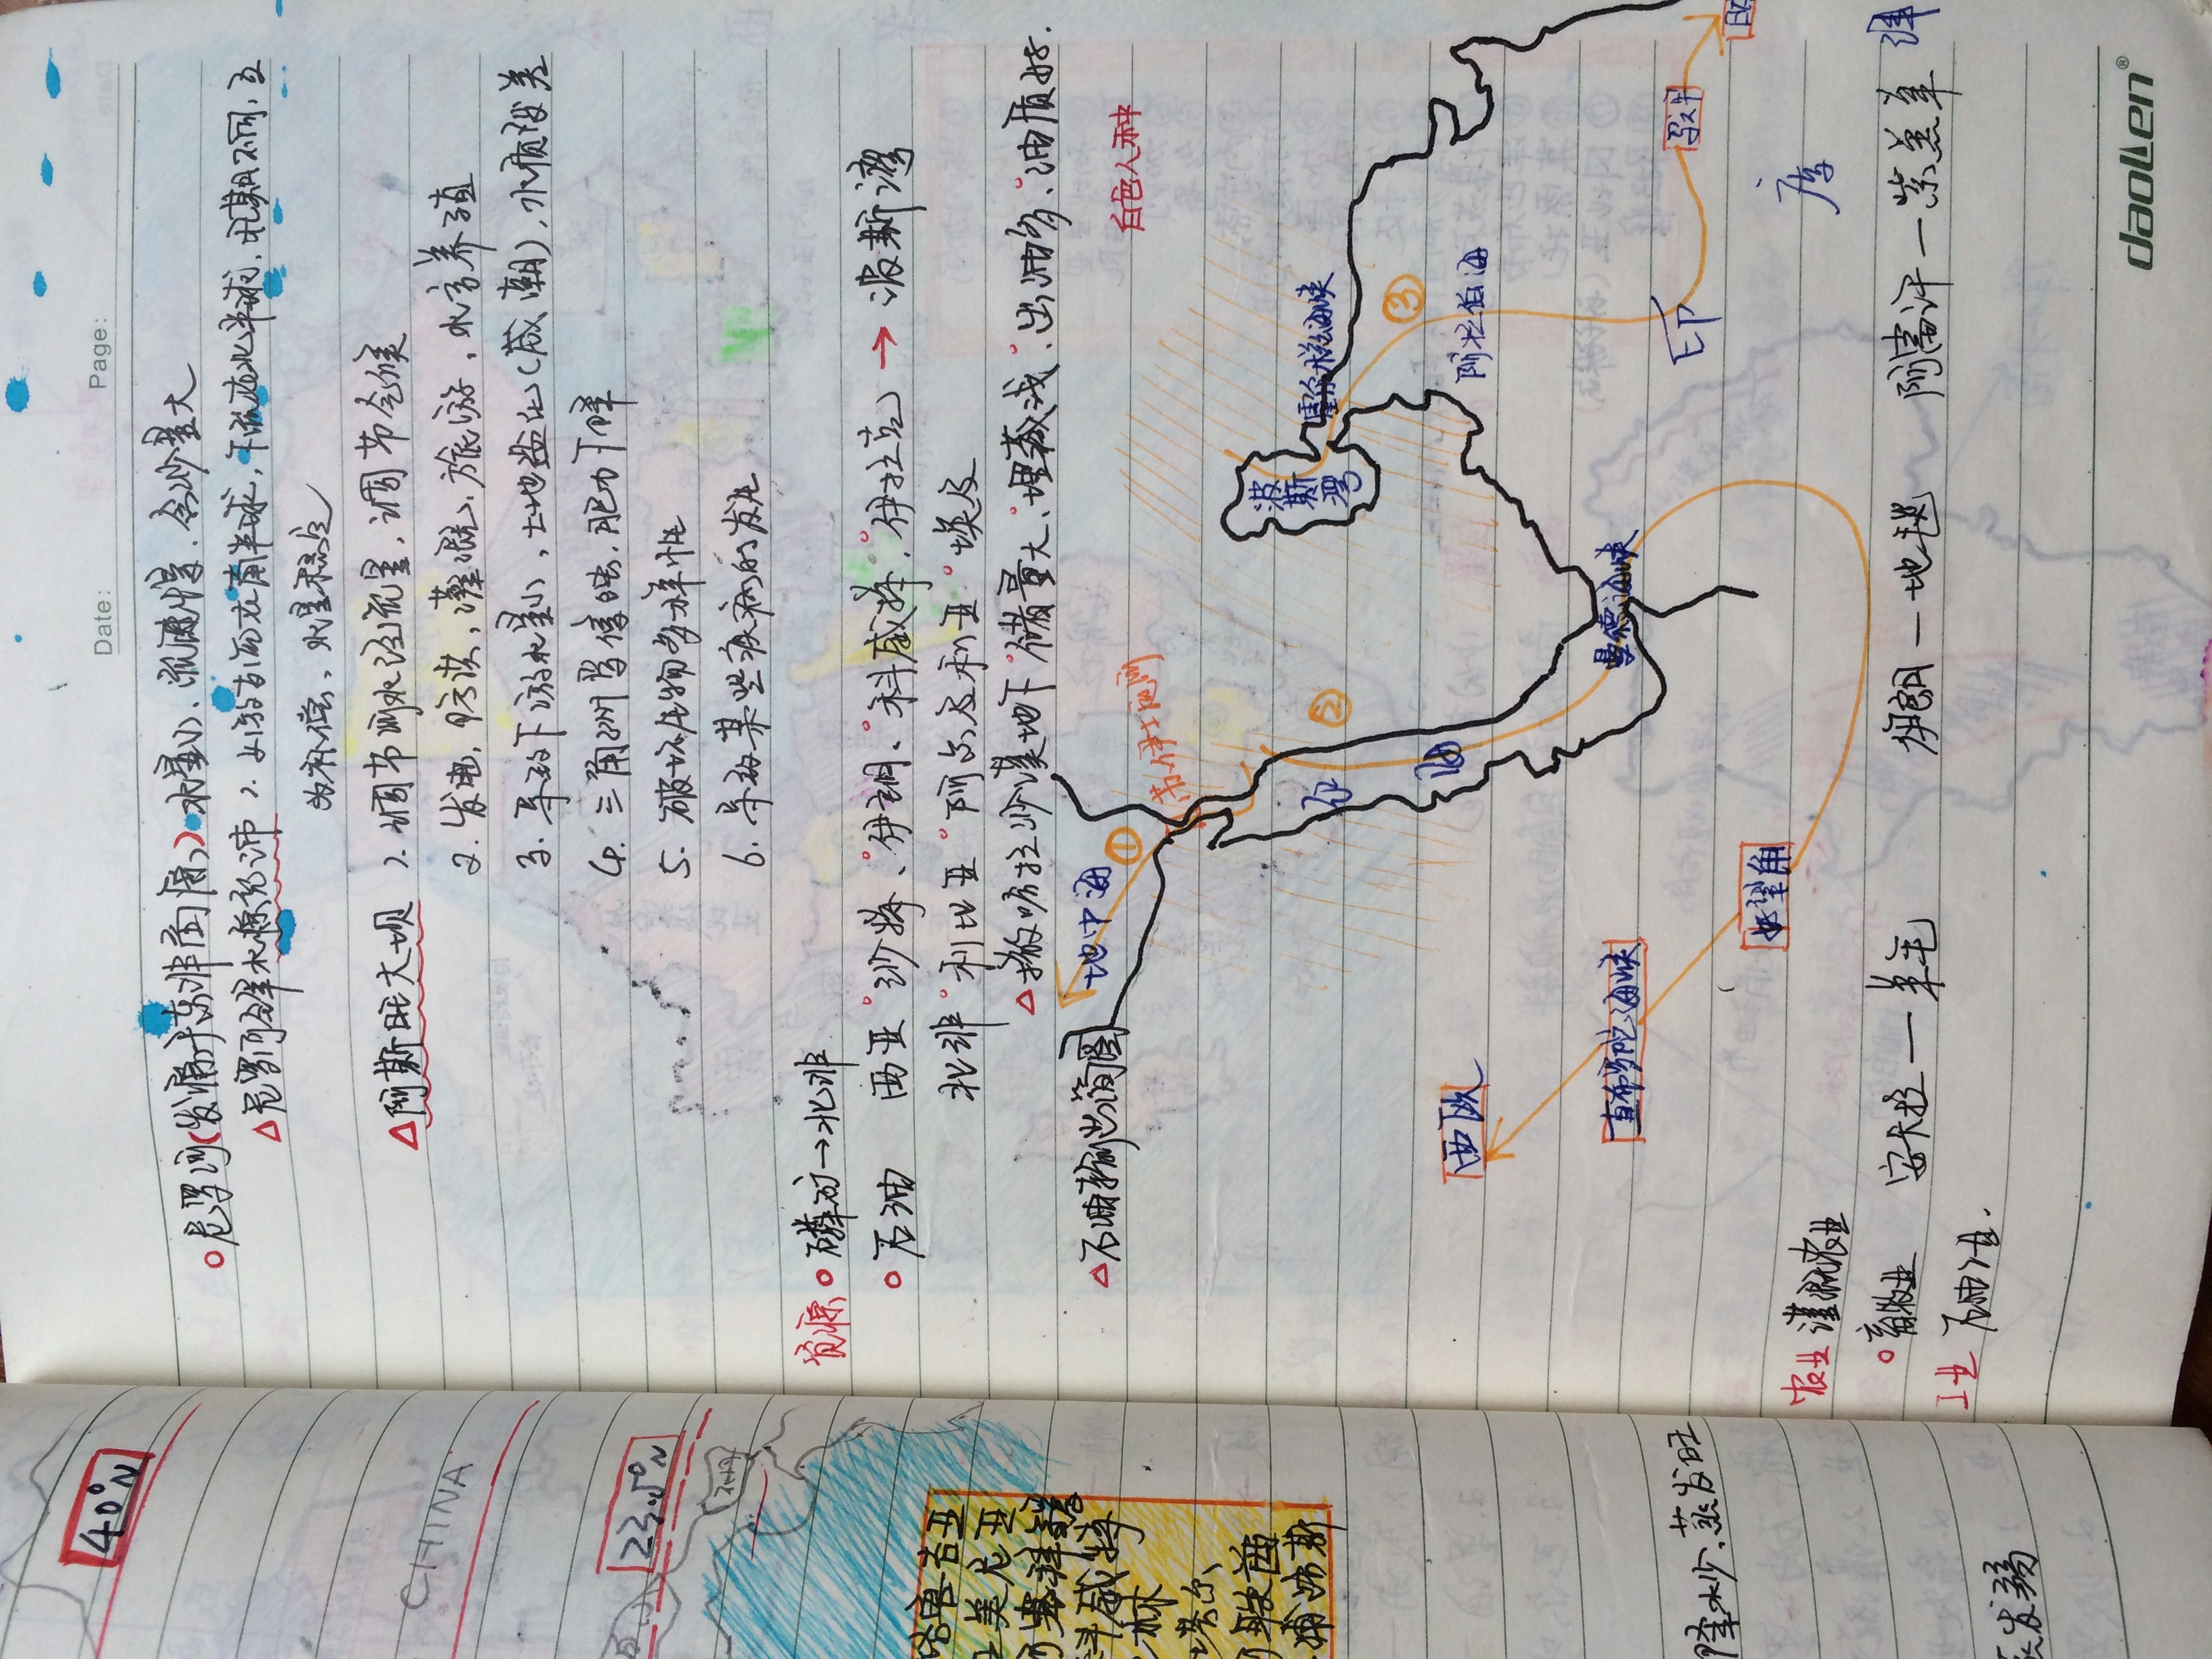 40°N
CHINA
23.5°N
塔
格鲁吉亚
美尼亚
阿塞拜疆
科威特
林
塔尔
阿联酋
浦路斯
降水少、蒸发旺
蒸发弱
Date: Page:
尼罗河(发源于东非高原) 水量小、流速慢、含沙量大
△尼罗河全年水源充沛 1. 上游白尼在南半球,下流在北半球,汛期不同,互
为补偿、水量稳定
△阿斯旺大坝 1. 调节河水径流量,调节气候
2. 发电,防洪,灌溉,旅游,水产养殖
3. 导致下游水量小,土地盐化(咸潮),水质变差
4. 三角洲受侵蚀,肥力下降
5. 破坏生物多样性
6. 导致某些疾病的发生
资源 磷矿→北非
石油 西亚 沙特、伊朗、科威特、伊拉克 → 波斯湾
北非 利比亚 阿尔及利亚 埃及
△撒哈拉沙漠地下 储量大、埋藏浅、出油多、油质好.
△石油输出简图 地中海 ①
白色人种
苏伊士运河
波斯湾
霍尔木兹海峡
红海
②
③
西欧
阿拉伯海
直布罗陀海峡
曼德海峡
印度洋
马六甲
日
好望角
农业 灌溉农业
畜牧业 安卡拉—羊毛 伊朗—地毯 阿富汗—紫羔羊
工业 石油工业.
daolen®